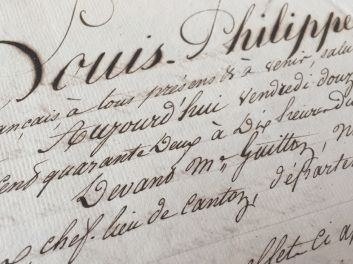 Louis-Philippe
ançais à tous présens & à venir, salu
Aujourd'hui vendredi douz
Cent quarante Deux à Dix heures d
Devant Me Guitton, n
chef-lieu de Canton, départem
ci a